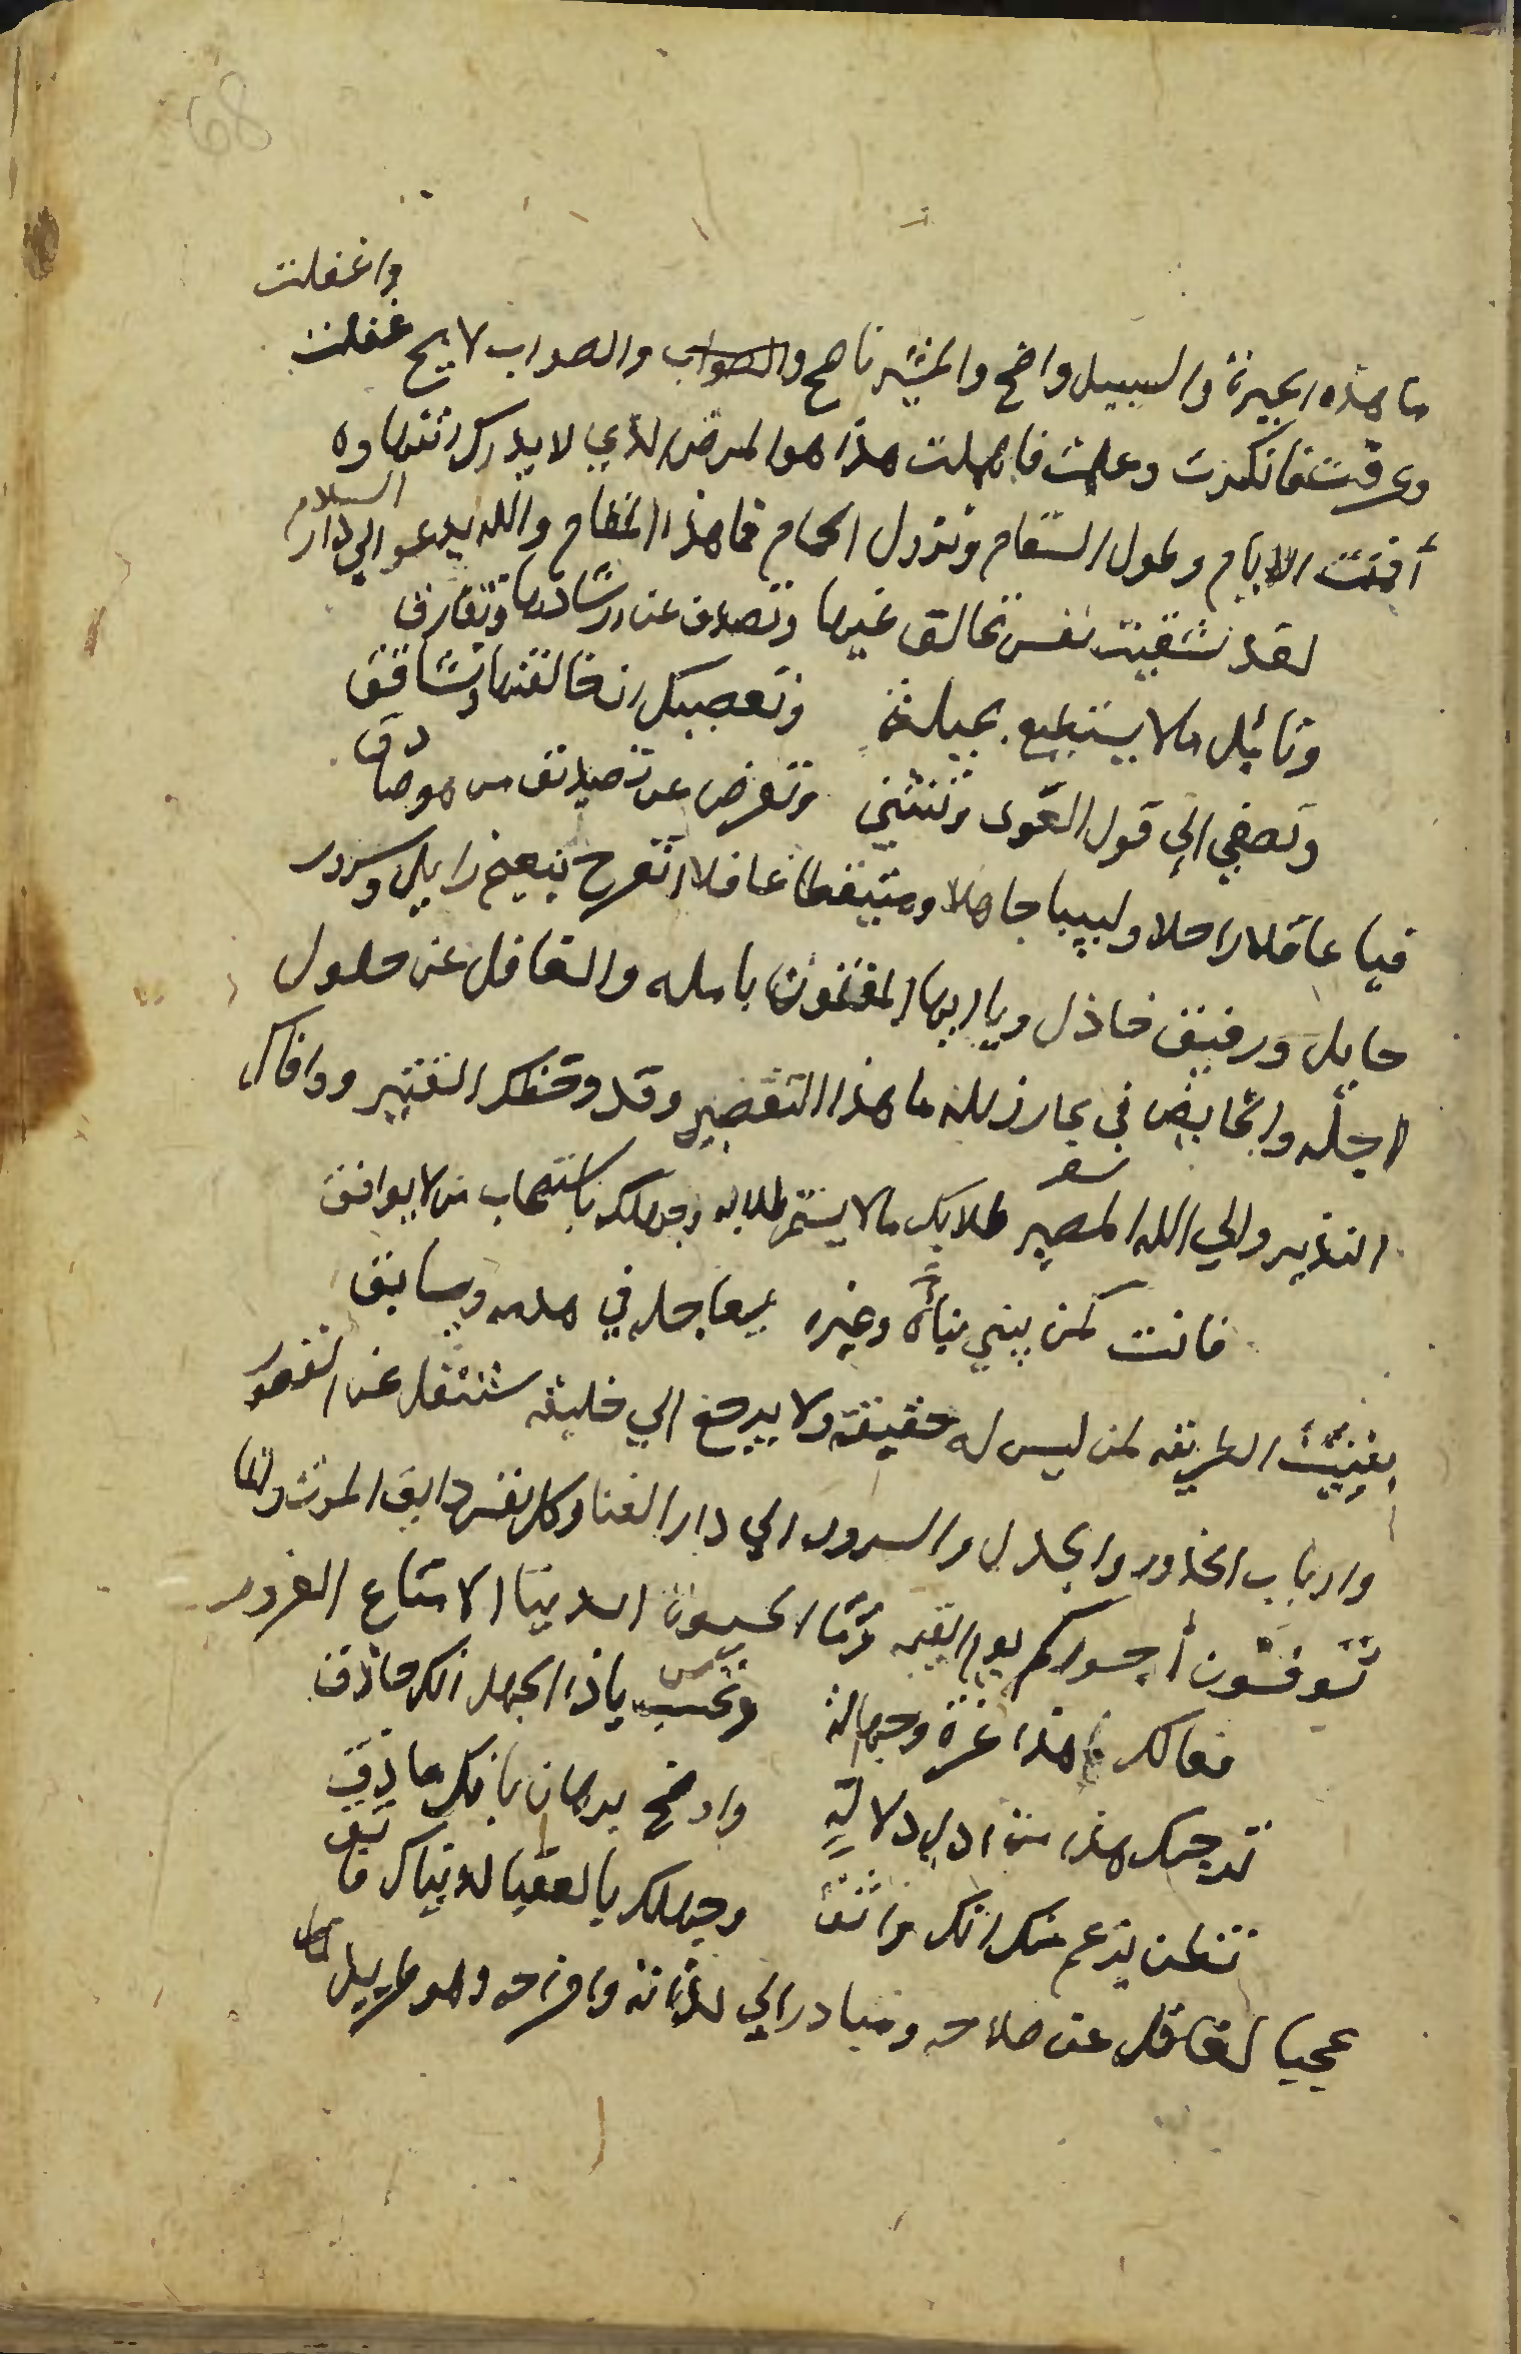 68
واغفلت
ما هذه الحيرة والسبيل واضح والمشير ناصح والصواب والصواب لايح غفلت
وعرفت فانكرت وعلمت فاهملت هذا هو المرض الذي لا يدرك
أفنت الايام وطول السقام ونزول الحمام فما هذا المقام والله يدعو الي دار السلام
لقد شقيت نفس تخالف غيها وتصدف عن ارشادها وتفارق
وتامل مالا يستطيع بحيلة وتعصيك ان خالفتها وتشاقق
وتصغي الي قول الغوى وتنثني وتعرض عن تصديق من هو صادق
فيا عاقلا راحلا ولبيبا جاهلا ومتيقظا غافلا اتفرح بنعيم زايل وسرور
حايل ورفيق خاذل ويا ايها المفتون بامله والغافل عن حلول
اجله والخايض في بحار زلله ما هذا التقصير وقد وخطك القتير ووافاك
النذير والي الله المصير طلابك مالا يستتم طلابه وجهلك باستصحاب من لا يوافق
سفر
فانت كمن يبني بناة وغيره يعاجله في هدمه ويسابق
الطريقه لمن ليس له حقيقة ولا يرجع الي خليقه ستنتقل عن القصور
وارباب الخدور والجذل والسرور الي دار الفنا وكل نفس ذايقة الموت وانما
توفون أجوركم يوم القيمه وما الحيوة الدنيا الا متاع الغرور
فعالك هذا غرة وجهالة وتحسب ياذا الجهل انك حاذق
بهذا من ادل دلالة واوضح برهان بانك ماذق
تظن بزعم منك انك واثق وجهلك بالعقبا لدنياك فاتق
عجبا لغافل عن صلاحه ومبادر الي لذاته وافراحه وهو